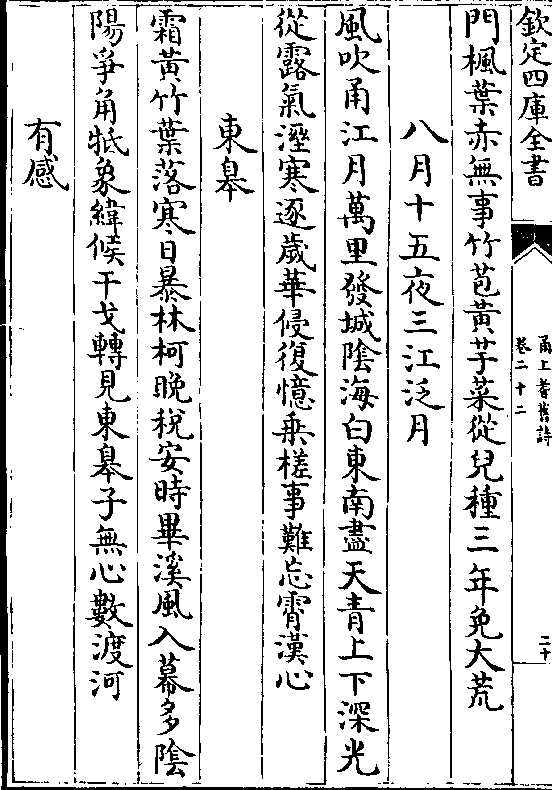 欽定四庫全書
甬上耆舊詩
卷二十二
二十
門楓葉赤無事竹苞黃芋菜從兒種三年免大荒
八月十五夜三江泛月
風吹甬江月萬里發城陰海白東南盡天青上下深光
從露氣溼寒逐歲華侵復憶乗槎事難忘霄漢心
東皋
霜黃竹葉落寒日暴林柯晚稅安時畢溪風入幕多陰
陽爭角牴象緯候干戈轉見東皋子無心數渡河
有感